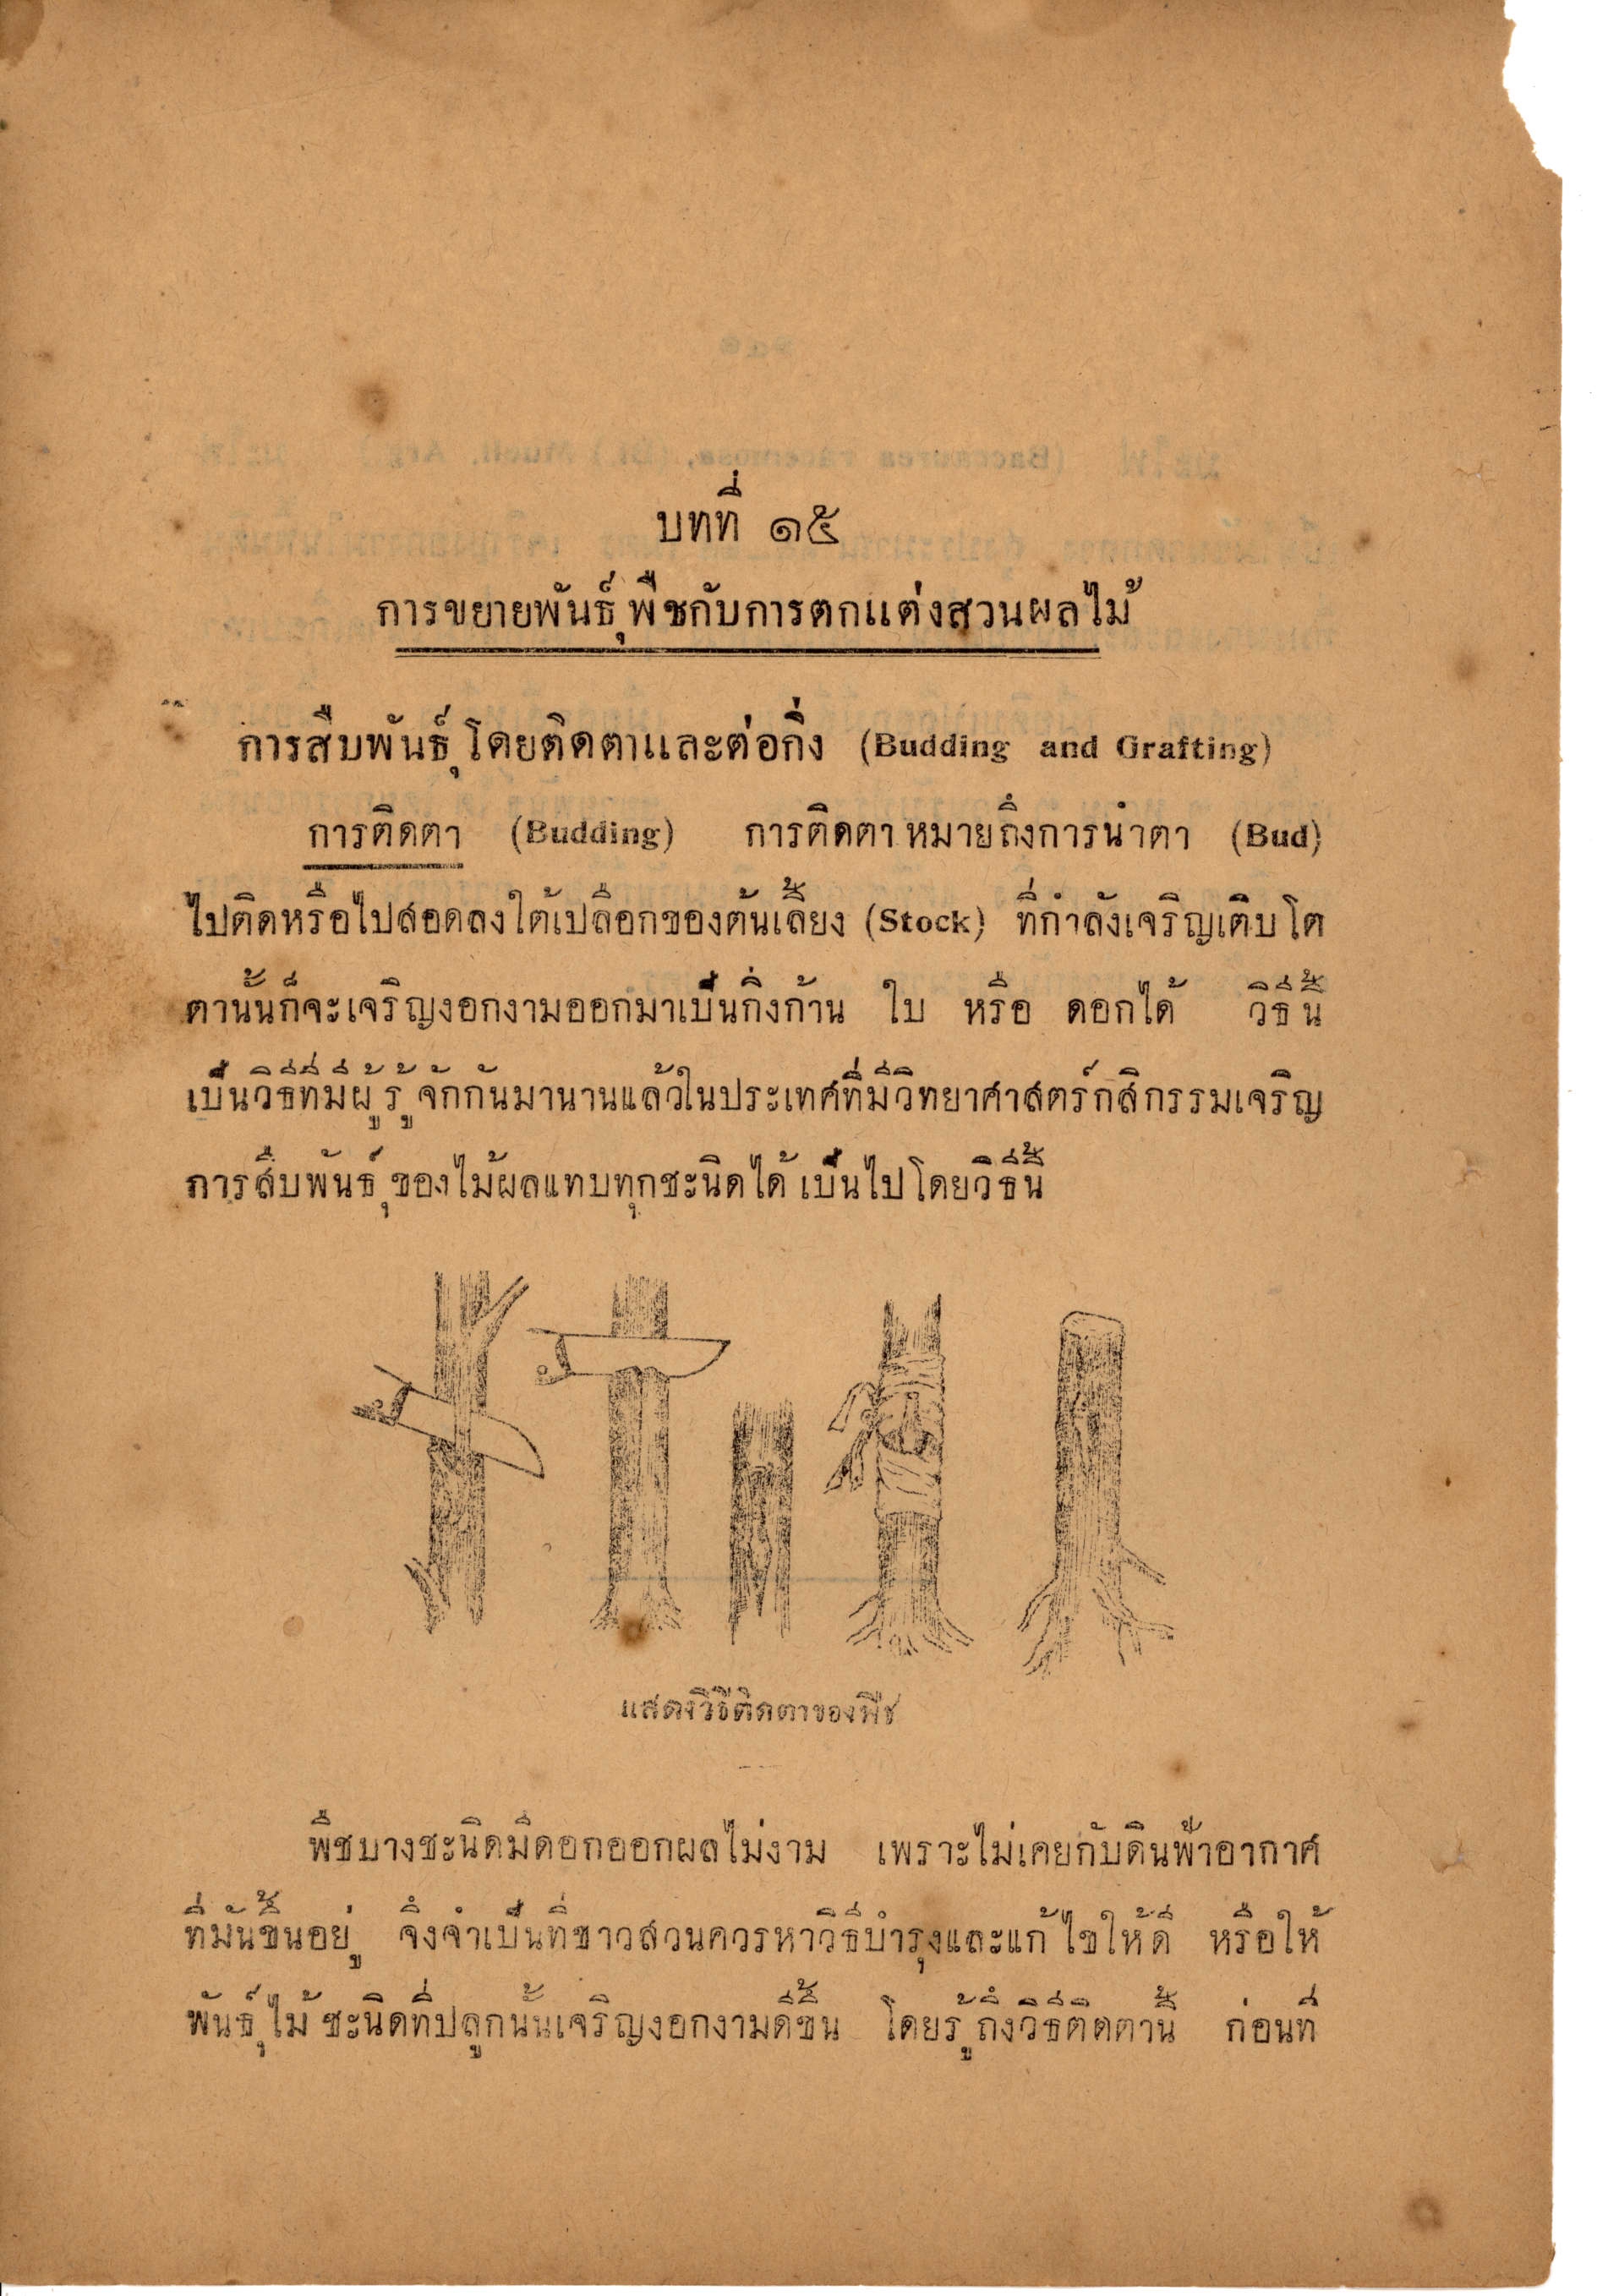 บทที่ ๑๕
การขยายพันธุ์พืชกับการตกแต่งสวนผลไม้
การสืบพันธุ์โดยติดตาและต่อกิ่ง (Budding and Grafting)
การติดตา (Budding) การติดตา หมายถึงการนำตา (Bud)
ไปติดหรือไปสอดลงใต้เปลือกของต้นเลี้ยง (Stock) ที่กำลังเจริญเติบโต
ตานั้นก็จะเจริญงอกงามออกมาเป็นกิ่งก้าน ใบ หรือ ดอกได้ วิธีนี้
เป็นวิธีที่มีผู้รู้จักกันมานานแล้วในประเทศที่มีวิทยาศาสตร์กสิกรรมเจริญ
การสืบพันธุ์ของไม้ผลแทบทุกชะนิดได้เป็นไปโดยวิธีนี้
แสดงวิธีติดตาของพืช
พืชบางชะนิดมีดอกออกผลไม่งาม เพราะไม่เคยกับดินฟ้าอากาศ
ที่มันขึ้นอยู่ จึงจำเป็นที่ชาวสวนควรหาวิธีบำรุงและแก้ไขให้ดี หรือให้
พันธุ์ไม้ชะนิดที่ปลูกนั้นเจริญงอกงามดีขึ้น โดยรู้ถึงวิธีติดตานี้ ก่อนที่